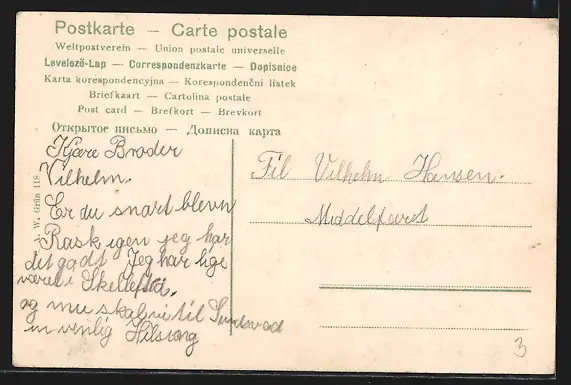 Postkarte — Carte postale
Weltpostverein — Union postale universelle
Levelező-Lap — Correspondenzkarte — Dopisnice
Karta korespondencyjna — Korespondenční lístek
Briefkaart — Cartolina postale
Post card — Brefkort — Brevkort
Открытое письмо — Дописна карта
Kjære Broder
Vilhelm.
Er du snart bleven
Rask igen jeg har
det godt Jeg har lige
været i
og nu skal vi til
en venlig Hilsen
Til Vilhelm Hansen.
Middelfart
W. Grün 118
3